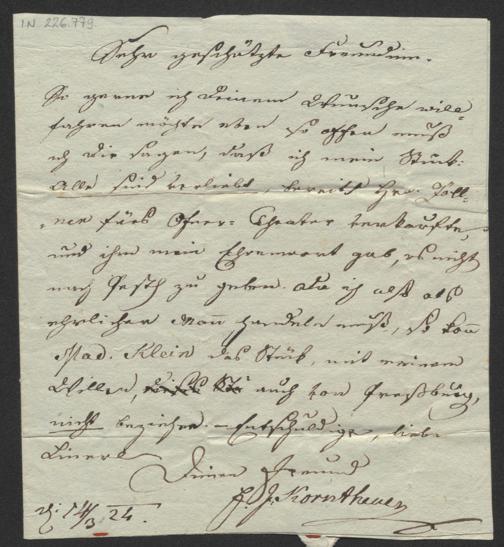 I.N. 226.779
Sehr geschätzte Freundin.
So gerne ich deinem Wunsche will-
fahren möchte eben so offen muß
ich dir sagen, daß ich mein Stück:
Alle sind verliebt, bereits Hr. Zoll-
ner fürs Ofner-Theater verkaufte,
und ihm mein Ehrenwort gab, es nicht
nach Pesth zu geben. Da ich als
ehrlicher Mann handeln muß, so kan
Mad. Klein das Stück, mit meinem
Willen, auch von Preßburg,
nicht beziehen. Entschuldige, liebe
Deinen Freund
F. J. Korntheuer
14/3 24.